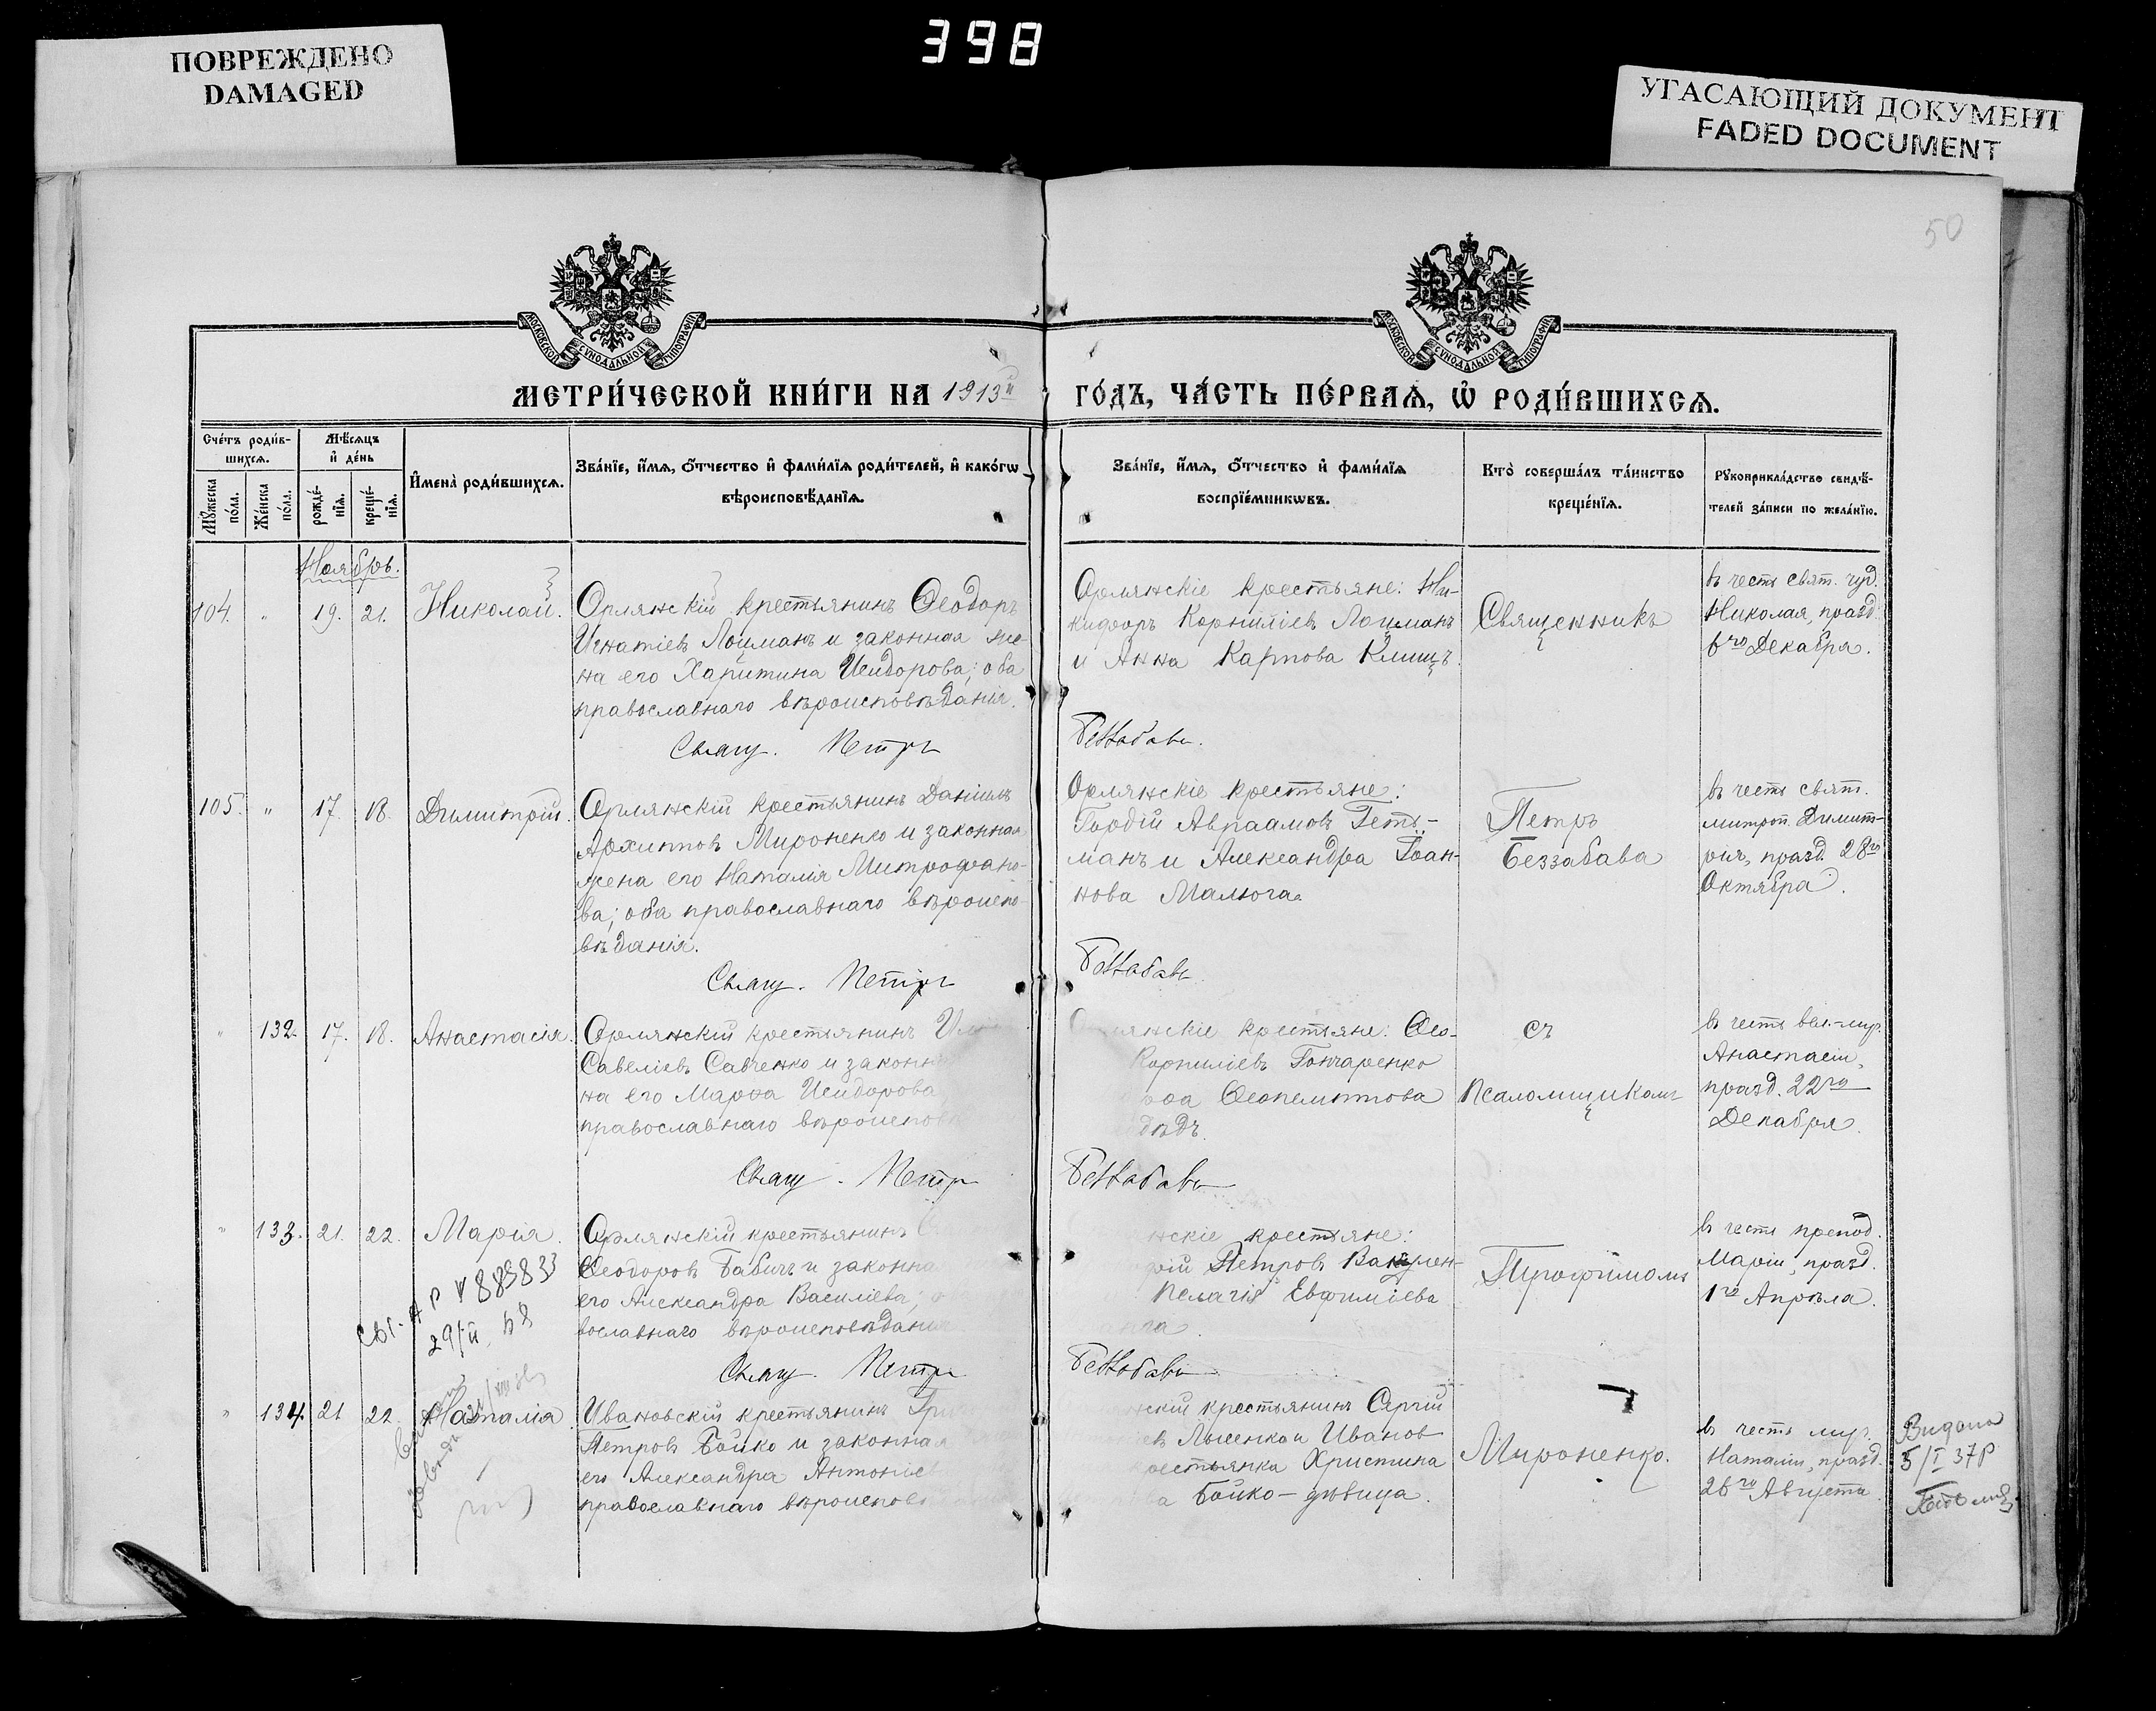 ПОВРЕЖДЕНО
DAMAGED
398
УГАСАЮЩИЙ ДОКУМЕНТ
FADED DOCUMENT
50
МОСКОВСКОЙ СѴНОДАЛЬНОЙ ТИПОГРАФІИ
МОСКОВСКОЙ СѴНОДАЛЬНОЙ ТИПОГРАФІИ
МЕТРИ́ЧЕСКОЙ КНИ́ГИ НА 1913й ГО́ДЪ, ЧА́СТЬ ПЕ́РВАѦ, Ѡ҆ РОДИ́ВШИХСѦ.
Сче́тъ роди́в-
шихсѧ.
Мѣ́сѧцъ
и҆ де́нь
И҆мена̀ роди́вшихсѧ.
Зва́нїе, и҆́мѧ, ѻ҆́тчество и҆ фами́лїѧ роди́телей, и҆ како́гѡ
вѣроисповѣ́данїѧ.
Зва́нїе, и҆́мѧ, ѻ҆́тчество и҆ фами́лїѧ
воспрїе́мникѡвъ.
Кто̀ соверша́лъ та́инство
креще́нїѧ.
Рꙋкоприкла́дство свидѣ́-
телей за́писи по жела́нїю.
Мꙋ́жеска
по́ла.
Же́нска
по́ла.
рожде́-
нїѧ.
креще́-
нїѧ.
Ноябрь.
104. " 19. 21. Николай.
Орлянскій крестьянинъ Ѳеодоръ
Игнатіевъ Лоцманъ и законная же-
на его Харитина Исидорова; оба
православнаго вѣроисповѣданія.
Свящ. Петръ
Орлянскіе крестьяне: Ни-
кифоръ Корниліевъ Лоцманъ
и Анна Карпова Клищъ.
Беззабава.
Священникъ
въ честь свят. чуд.
Николая, празд.
6го Декабря.
105. " 17. 18. Димитрій.
Орлянскій крестьянинъ Даніилъ
Архиповъ Мироненко и законная
жена его Наталія Митрофано-
ва; оба православнаго вѣроиспо-
вѣданія.
Свящ. Петръ
Орлянскіе крестьяне:
Гордій Авраамовъ Геть-
манъ и Александра Іоан-
нова Малюга.
Беззабава
Петръ
Беззабава
въ честь свят.
митроп. Димит-
рія, празд. 28го
Октября.
" 132. 17. 18. Анастасія.
Орлянскій крестьянинъ
Савеліевъ Савченко и законн
на его Марѳа Исидорова
православнаго вѣроиспов
Свящ. Петръ
крестьяне: Ѳео-
Корниліевъ Гончаренко
Ѳеопемптова
дѣдъ.
Беззабава
съ
Псаломщикомъ
въ честь вел.-муч.
Анастасіи,
празд. 22го
Декабря.
" 133. 21. 22. Марія.
Орлянскій крестьянинъ
Ѳеодоровъ Бабичъ и законна
его Александра Василіева;
вославнаго вѣроисповѣдания
Свящ. Петръ
нскіе крестьяне:
рій Петровъ Вакулен-
Пелагія Евфиміева
Беззабава
Трофимомъ
въ честь препод.
Маріи, празд.
1го Апрѣля.
889833
29/II 68
" 134. 21 22 Наталія
Ивановскій крестьянинъ Гри
Петровъ Бойко и законная
его Александра Антоніев
православнаго вѣроиспов
нскій крестьянинъ Сергій
Лысенко и Иванов
рестьянка Христина
ва Бойко - дѣвица.
Мироненко.
въ честь муч.
Наталіи, празд.
26го Августа
Видано
5/I 37р